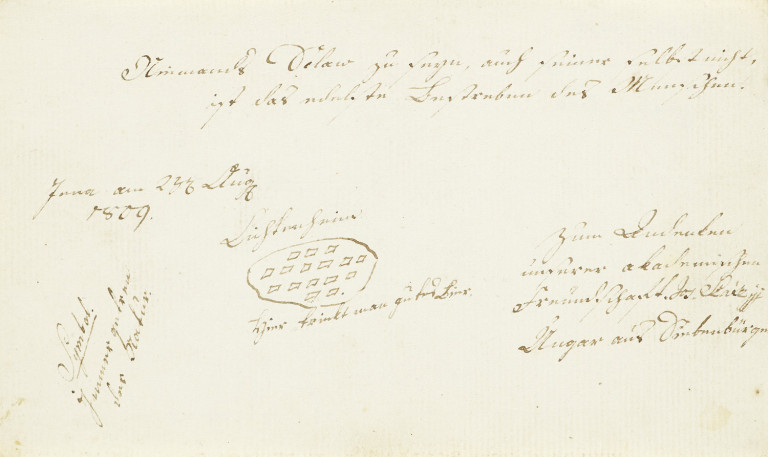 Niemands Sclave zu seyn, auch seiner selbst nicht,
ist das edelste Bestreben des Menschen.
Jena am 23 Aug
1809.
Lichtenheim
Hier trinkt man gutes Bier.
Symbol.
Immer getreu
der Natur.
Zum Andenken
unserer akademischen
Freundschaft
Ungar aus Siebenbürgen